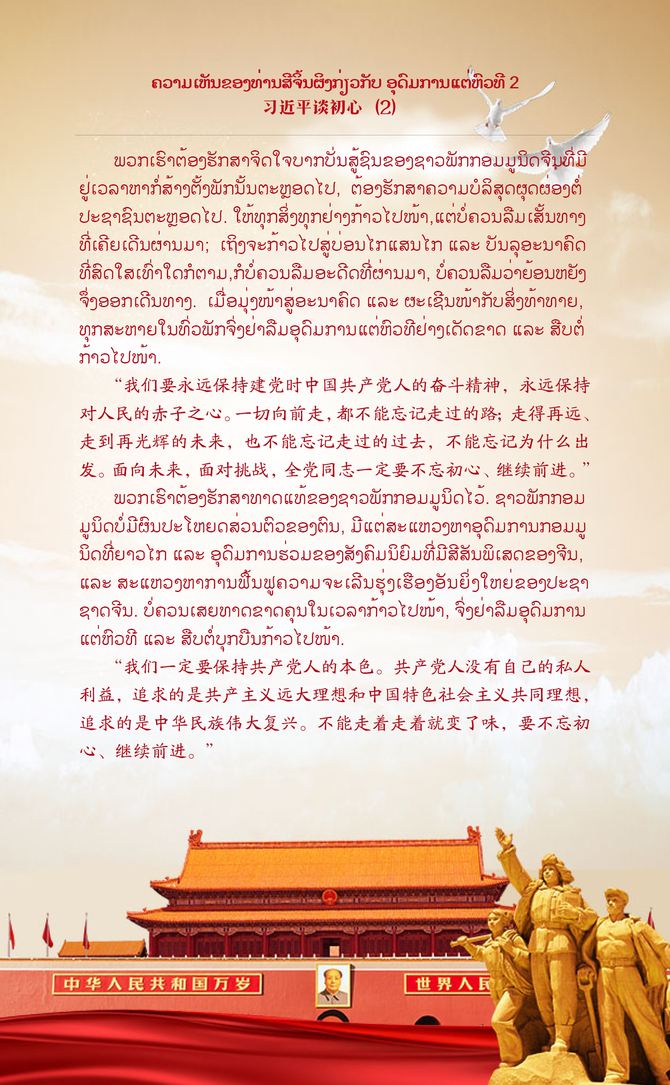 ຄວາມເຫັນຂອງທ່ານສີຈິ້ນຜິງກ່ຽວກັບ ອຸດົມການແຕ່ຫົວທີ 2
习近平谈初心 (2)
ພວກເຮົາຕ້ອງຮັກສາຈິດໃຈບາກບັ່ນສູ້ຊົນຂອງຊາວພັກກອມມູນິດຈີນທີ່ມີ
ຢູ່ເວລາຫາກໍ່ສ້າງຕັ້ງພັກນັ້ນຕະຫຼອດໄປ, ຕ້ອງຮັກສາຄວາມບໍລິສຸດຜຸດຜ່ອງຕໍ່
ປະຊາຊົນຕະຫຼອດໄປ. ໃຫ້ທຸກສິ່ງທຸກຢ່າງກ້າວໄປໜ້າ,ແຕ່ບໍ່ຄວນລືມເສັ້ນທາງ
ທີ່ເຄີຍເດີນຜ່ານມາ; ເຖິງຈະກ້າວໄປສູ່ບ່ອນໄກແສນໄກ ແລະ ບັນລຸອະນາຄົດ
ທີ່ສົດໃສເທົ່າໃດກໍຕາມ,ກໍບໍ່ຄວນລືມອະດີດທີ່ຜ່ານມາ, ບໍ່ຄວນລືມວ່າຍ້ອນຫຍັງ
ຈຶ່ງອອກເດີນທາງ. ເມື່ອມຸ່ງໜ້າສູ່ອະນາຄົດ ແລະ ຜະເຊີນໜ້າກັບສິ່ງທ້າທາຍ,
ທຸກສະຫາຍໃນທົ່ວພັກຈົ່ງຢ່າລືມອຸດົມການແຕ່ຫົວທີຢ່າງເດັດຂາດ ແລະ ສືບຕໍ່
ກ້າວໄປໜ້າ.
“我们要永远保持建党时中国共产党人的奋斗精神，永远保持
对人民的赤子之心。一切向前走，都不能忘记走过的路；走得再远、
走到再光辉的未来，也不能忘记走过的过去，不能忘记为什么出
发。面向未来，面对挑战，全党同志一定要不忘初心、继续前进。”
ພວກເຮົາຕ້ອງຮັກສາທາດແທ້ຂອງຊາວພັກກອມມູນິດໄວ້. ຊາວພັກກອມ
ມູນິດບໍ່ມີຜົນປະໂຫຍດສ່ວນຕົວຂອງຕົນ, ມີແຕ່ສະແຫວງຫາອຸດົມການກອມມູ
ນິດທີ່ຍາວໄກ ແລະ ອຸດົມການຮ່ວມຂອງສັງຄົມນິຍົມທີ່ມີສີສັນພິເສດຂອງຈີນ,
ແລະ ສະແຫວງຫາການຟື້ນຟູຄວາມຈະເລີນຮຸ່ງເຮືອງອັນຍິ່ງໃຫຍ່ຂອງປະຊາ
ຊາດຈີນ. ບໍ່ຄວນເສຍທາດຂາດຄຸນໃນເວລາກ້າວໄປໜ້າ, ຈົ່ງຢ່າລືມອຸດົມການ
ແຕ່ຫົວທີ ແລະ ສືບຕໍ່ບຸກບືນກ້າວໄປໜ້າ.
“我们一定要保持共产党人的本色。共产党人没有自己的私人
利益，追求的是共产主义远大理想和中国特色社会主义共同理想，
追求的是中华民族伟大复兴。不能走着走着就变了味，要不忘初
心、继续前进。”
中华人民共和国万岁
世界人民